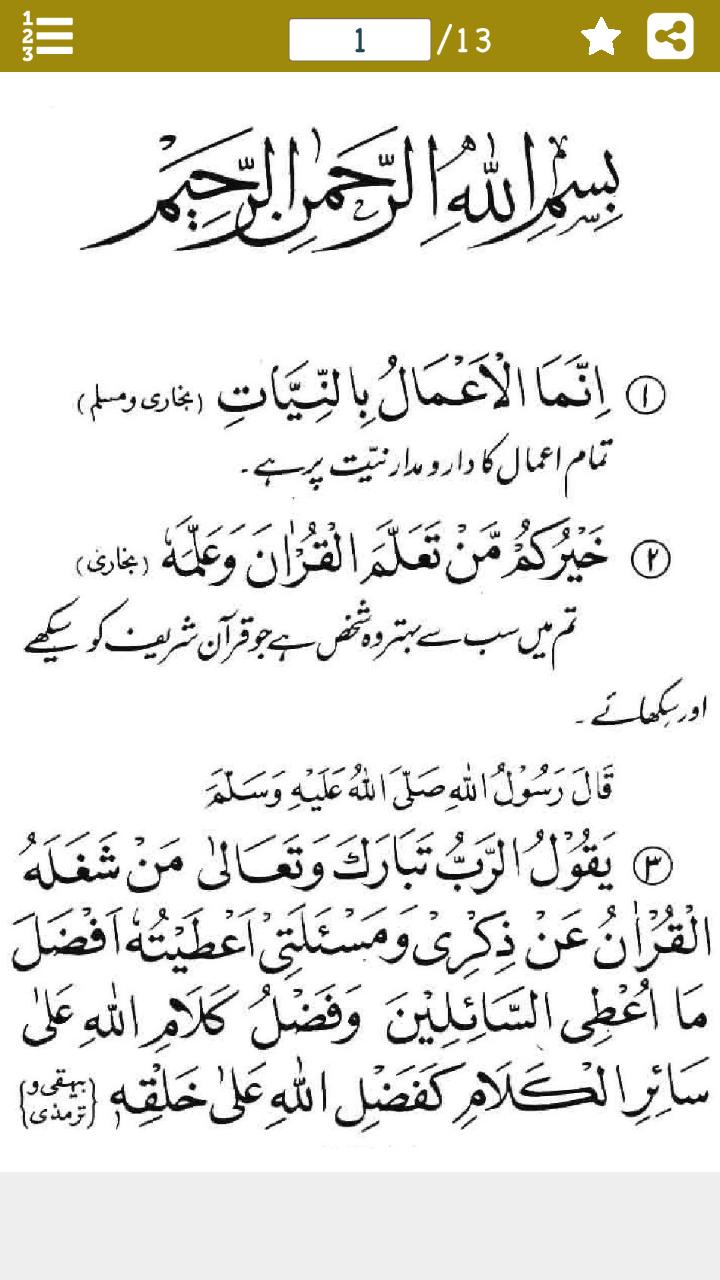 1
2
3
1 /13
بِسْمِ اللهِ الرَّحْمٰنِ الرَّحِيْمِ
① اِنَّمَا الْاَعْمَالُ بِالنِّيَّاتِ (بخاری و مسلم)
تمام اعمال کا دار و مدار نیّت پر ہے۔
② خَيْرُكُمْ مَّنْ تَعَلَّمَ الْقُرْاٰنَ وَعَلَّمَهٗ (بخاری)
تم میں سب سے بہتر وہ شخص ہے جو قرآن شریف کو سیکھے
اور سکھائے۔
قَالَ رَسُوْلُ اللهِ صَلَّى اللهُ عَلَيْهِ وَسَلَّمَ
③ يَقُوْلُ الرَّبُّ تَبَارَكَ وَتَعَالىٰ مَنْ شَغَلَهُ
الْقُرْاٰنُ عَنْ ذِكْرِیْ وَمَسْئَلَتِیْ اَعْطَيْتُهٗ اَفْضَلَ
مَا اُعْطِی السَّائِلِيْنَ وَفَضْلُ كَلَامِ اللهِ عَلىٰ
سَائِرِ الْكَلَامِ كَفَضْلِ اللهِ عَلىٰ خَلْقِهٖ {بیہقی و ترمذی}